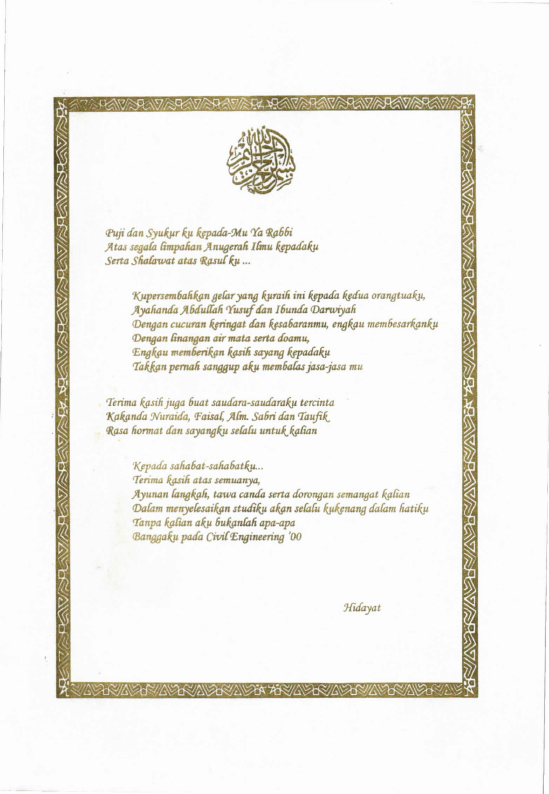 بسم الله الرحمن الرحيم
Puji dan Syukur ku kepada-Mu Ya Rabbi
Atas segala limpahan Anugerah Ilmu kepadaku
Serta Shalawat atas Rasul ku ...
Kupersembahkan gelar yang kuraih ini kepada kedua orangtuaku,
Ayahanda Abdullah Yusuf dan Ibunda Darwiyah
Dengan cucuran keringat dan kesabaranmu, engkau membesarkanku
Dengan linangan air mata serta doamu,
Engkau memberikan kasih sayang kepadaku
Takkan pernah sanggup aku membalas jasa-jasa mu
Terima kasih juga buat saudara-saudaraku tercinta
Kakanda Nuraida, Faisal, Alm. Sabri dan Taufik
Rasa hormat dan sayangku selalu untuk kalian
Kepada sahabat-sahabatku...
Terima kasih atas semuanya,
Ayunan langkah, tawa canda serta dorongan semangat kalian
Dalam menyelesaikan studiku akan selalu kukenang dalam hatiku
Tanpa kalian aku bukanlah apa-apa
Banggaku pada Civil Engineering '00
Hidayat